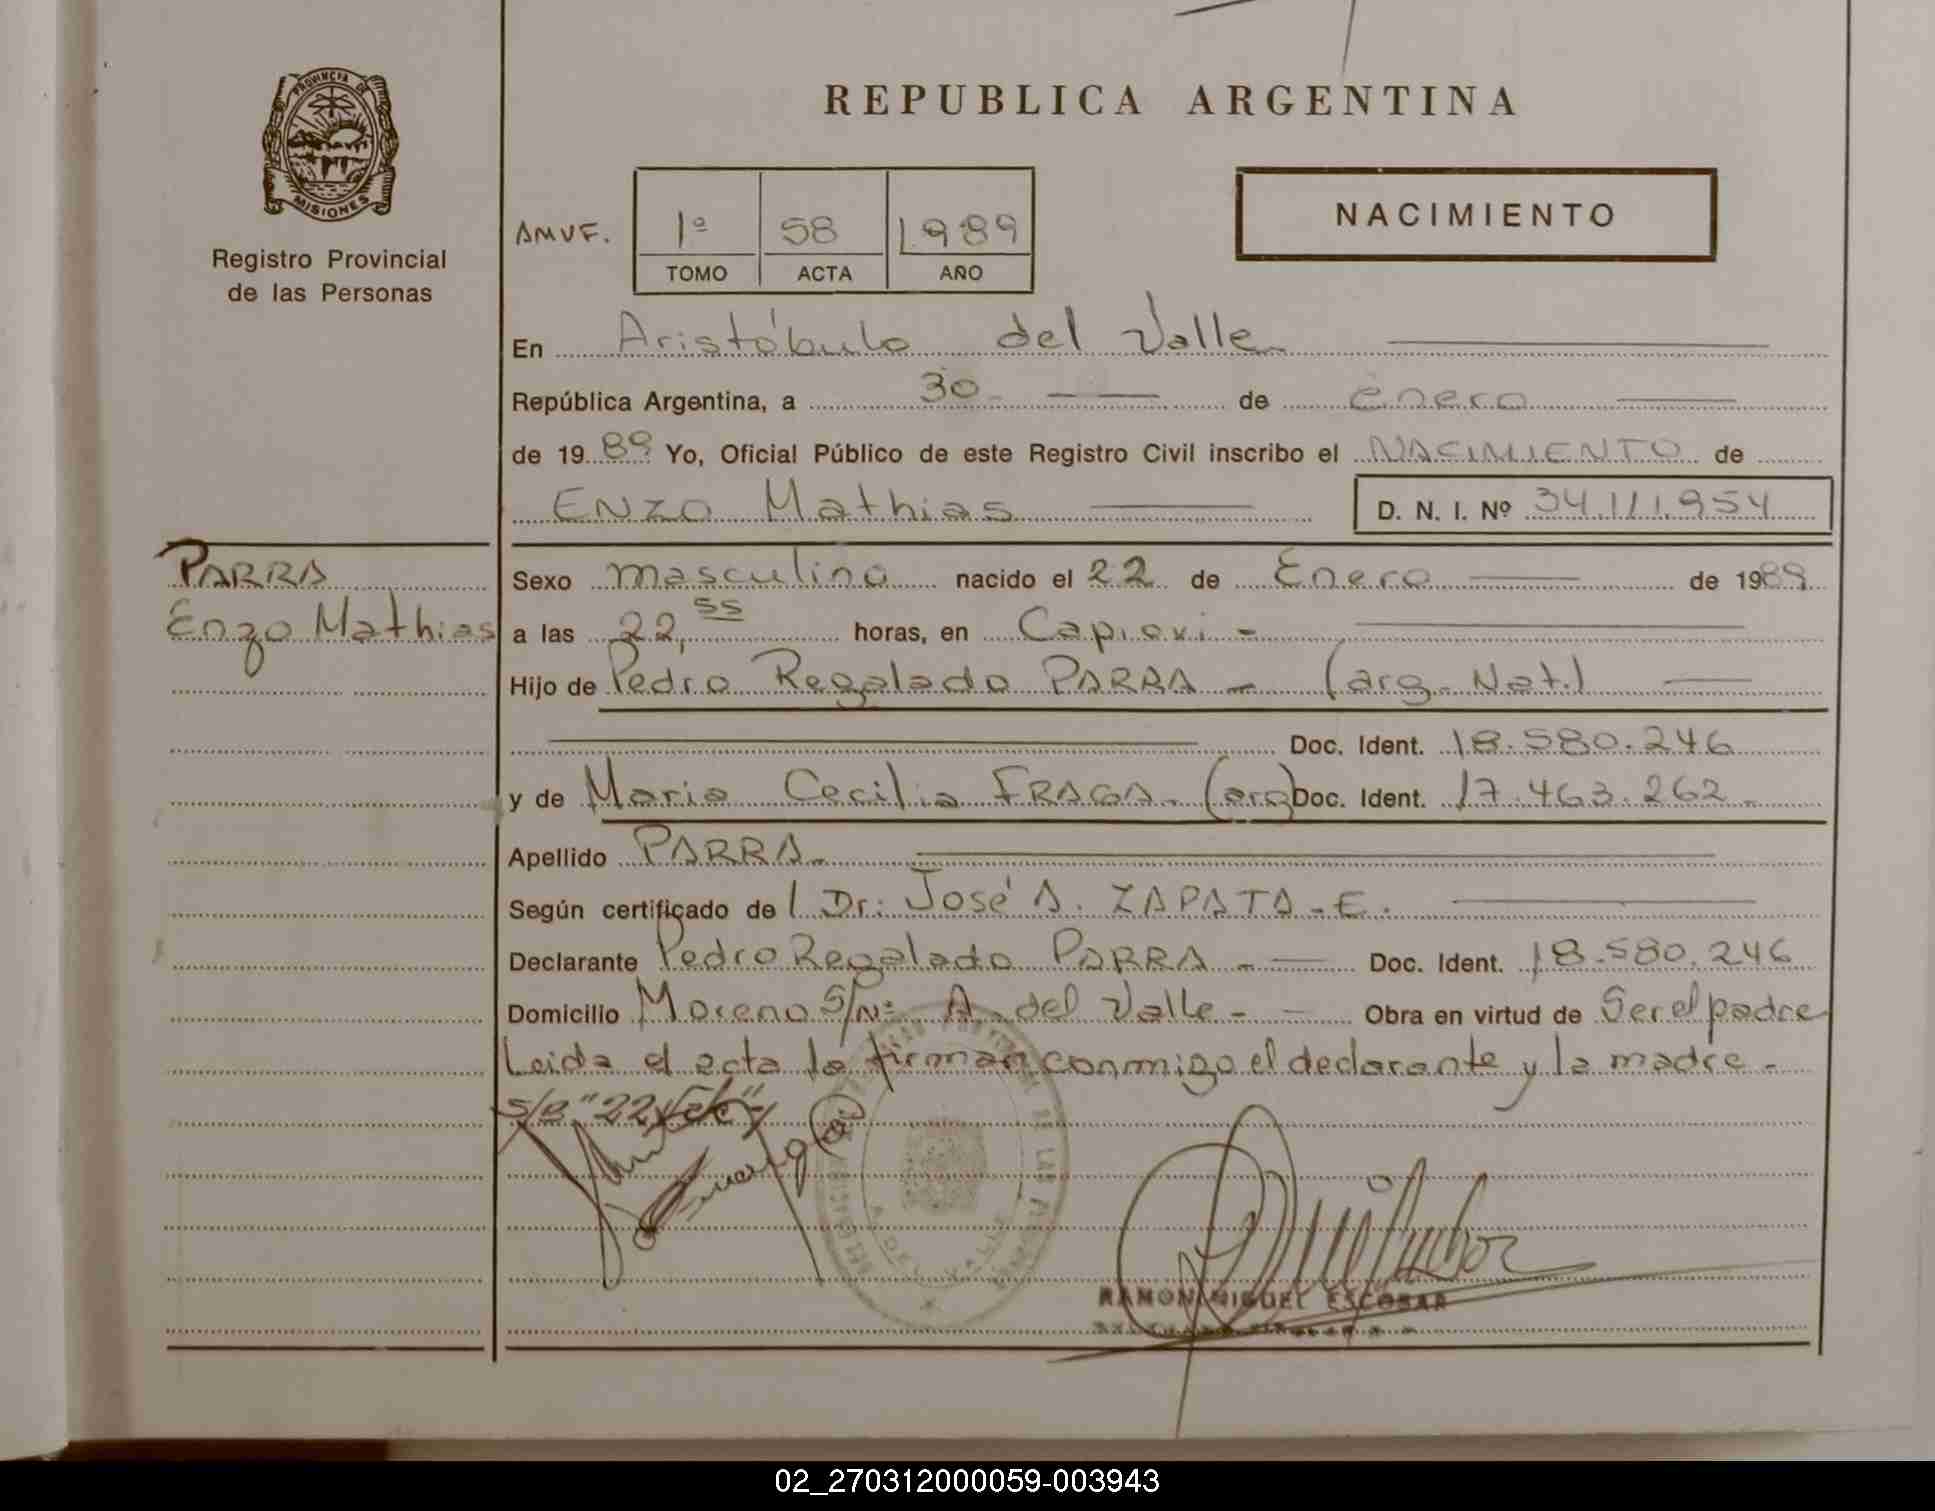 PROVINCIA DE
MISIONES
Registro Provincial
de las Personas
REPUBLICA ARGENTINA
AMVF.
1º 58 1989
TOMO ACTA AÑO
NACIMIENTO
En Aristóbulo del Valle
República Argentina, a 30 de enero
de 1989 Yo, Oficial Público de este Registro Civil inscribo el NACIMIENTO de
ENZO Mathias D. N. I. Nº 34.111.954
PARRA
Enzo Mathias
Sexo masculino nacido el 22 de Enero de 1989
a las 22,55 horas, en Capiovi -
Hijo de Pedro Regalado PARRA - (arg. Nat.)
Doc. Ident. 18.580.246
y de Maria Cecilia FRAGA. (arg) Doc. Ident. 17.463.262 -
Apellido PARRA.
Según certificado de l Dr: José A. ZAPATA - E.
Declarante Pedro Regalado PARRA - Doc. Ident. 18.580.246
Domicilio Moreno S/Nº A. del Valle - Obra en virtud de Ser el padre
Leida el acta la firman conmigo el declarante y la madre -
A. DEL VALLE
RAMON MIGUEL ESCOBAR
02_270312000059-003943